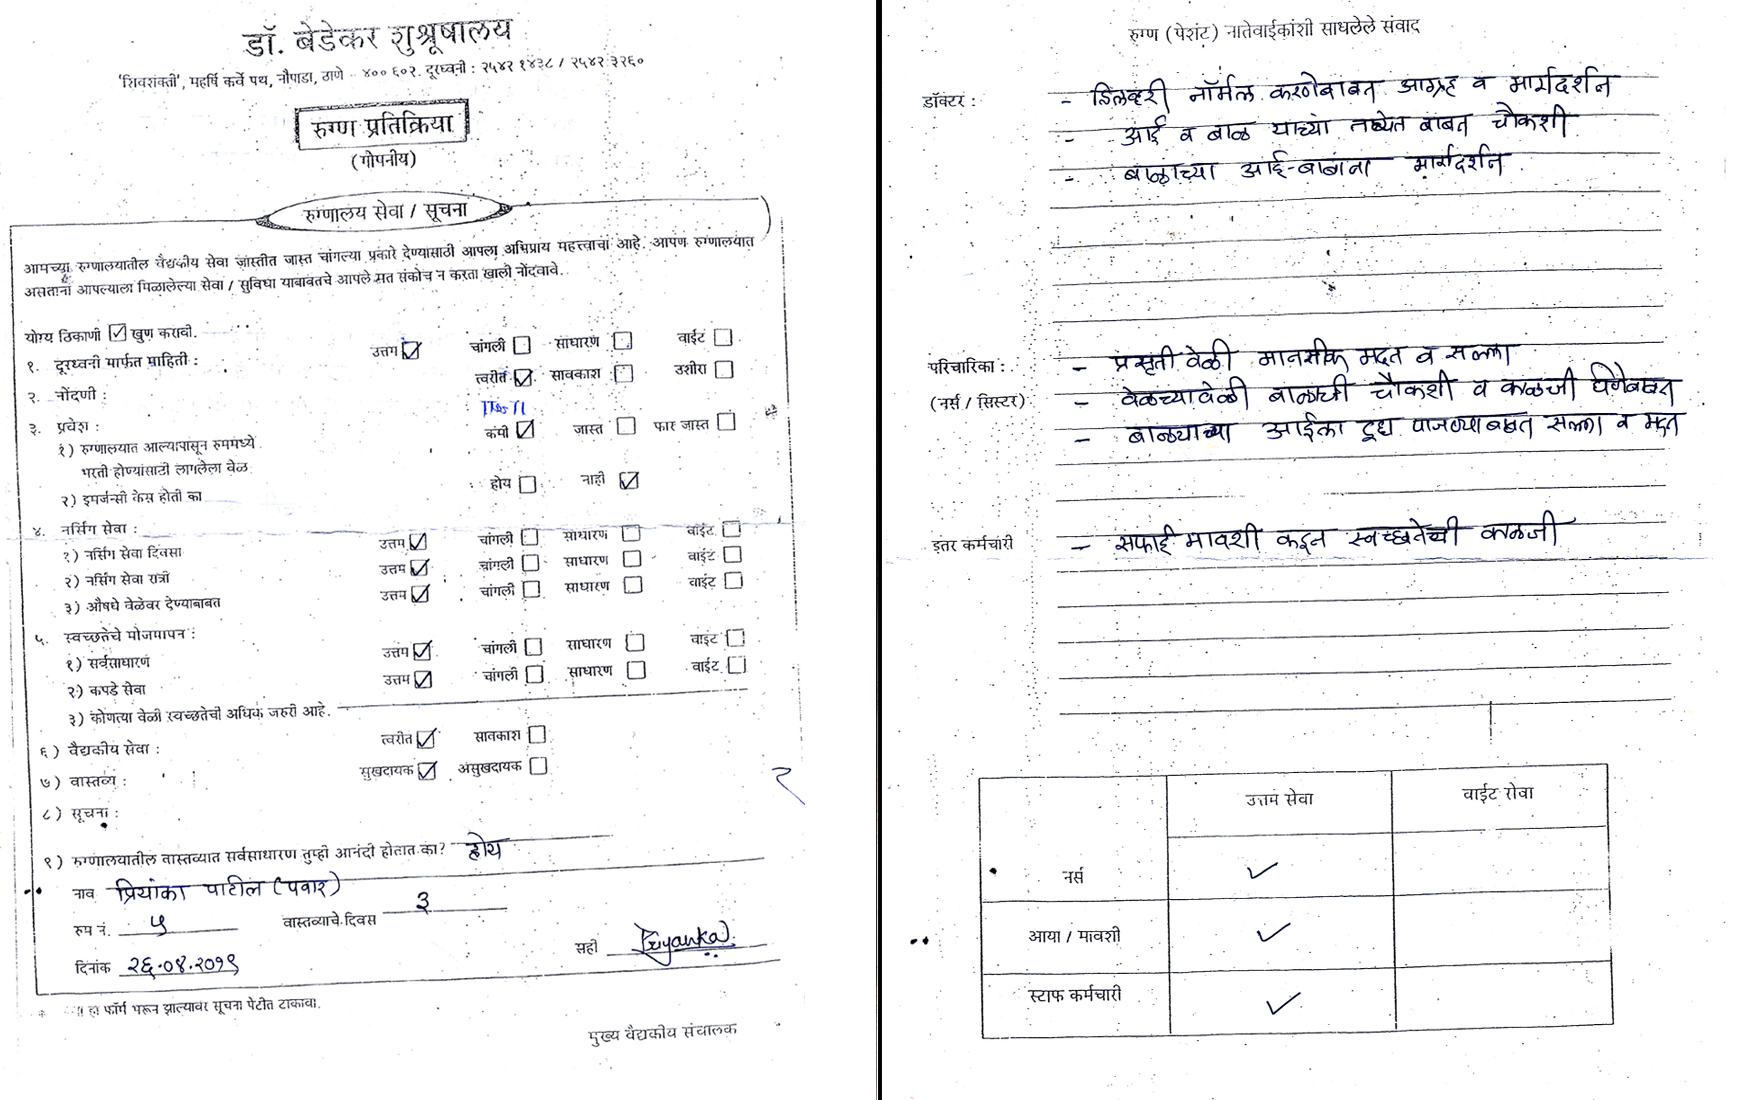 डॉ. बेडेकर शुश्रूषालय
'शिवशक्ती', महर्षि कर्वे पथ, नौपाडा, ठाणे - ४०० ६०२. दूरध्वनी : २५४२ १४३८ / २५४२ ३२६०
रुग्ण प्रतिक्रिया
(गोपनीय)
रुग्णालय सेवा / सूचना
आमच्या रुग्णालयातील वैद्यकीय सेवा जास्तीत जास्त चांगल्या प्रकारे देण्यासाठी आपला अभिप्राय महत्त्वाचा आहे. आपण रुग्णालयात
असताना आपल्याला मिळालेल्या सेवा / सुविधा याबाबतचे आपले मत संकोच न करता खाली नोंदवावे.
योग्य ठिकाणी ☑ खुण करावी.
१. दूरध्वनी मार्फत माहिती : उत्तम ☑ चांगली ☐ साधारण ☐ वाईट ☐
२. नोंदणी : त्वरीत ☑ सावकाश ☐ उशीरा ☐
३. प्रवेश :
१) रुग्णालयात आल्यापासून रुममध्ये कमी ☑ जास्त ☐ फार जास्त ☐
भरती होण्यांसाठी लागलेला वेळ
२) इमर्जन्सी केस होती का होय ☐ नाही ☑
४. नर्सिंग सेवा :
१) नर्सिंग सेवा दिवसा उत्तम ☑ चांगली ☐ साधारण ☐ वाईट ☐
२) नर्सिंग सेवा रात्री उत्तम ☑ चांगली ☐ साधारण ☐ वाईट ☐
३) औषधे वेळेवर देण्याबाबत उत्तम ☑ चांगली ☐ साधारण ☐ वाईट ☐
५. स्वच्छतेचे मोजमापन :
१) सर्वसाधारण उत्तम ☑ चांगली ☐ साधारण ☐ वाईट ☐
२) कपडे सेवा उत्तम ☑ चांगली ☐ साधारण ☐ वाईट ☐
३) कोणत्या वेळी स्वच्छतेची अधिक जरुरी आहे.
६) वैद्यकीय सेवा : त्वरीत ☑ सावकाश ☐
७) वास्तव्य : सुखदायक ☑ असुखदायक ☐
८) सूचना :
९) रुग्णालयातील वास्तव्यात सर्वसाधारण तुम्ही आनंदी होतात का? होय
नाव प्रियांका पाटील (पवार)
रुम नं. ५ वास्तव्याचे दिवस ३
सही Priyanka
दिनांक २६.०४.२०१९
हा फॉर्म भरून झाल्यावर सूचना पेटीत टाकावा.
मुख्य वैद्यकीय संचालक
२
रुग्ण (पेशंट) नातेवाईकांशी साधलेले संवाद
डॉक्टर : - डिलव्हरी नॉर्मल करणेबाबत आग्रह व मार्गदर्शन
- आई व बाळ याच्या तब्येत बाबत चौकशी
- बाळाच्या आई-बाबांना मार्गदर्शन
परिचारिका : - प्रसृती वेळी मानसीक मदत व सल्ला
(नर्स / सिस्टर) - वेळच्यावेळी बाळाची चौकशी व काळजी घेणेबाबत
- बाळाच्या आईला दूध पाजण्याबाबत सल्ला व मदत
इतर कर्मचारी - सफाई मावशी कडून स्वच्छतेची काळजी
उत्तम सेवा वाईट सेवा
नर्स ✓
आया / मावशी ✓
स्टाफ कर्मचारी ✓